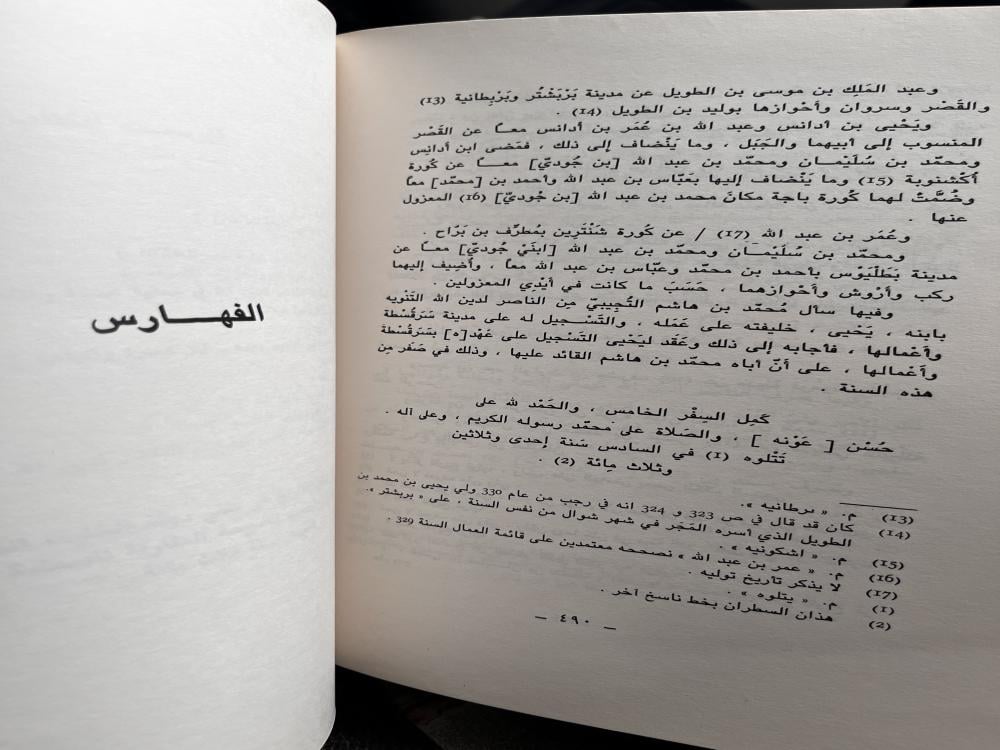 وعبد المَلِك بن موسى بن الطويل عن مدينة بَرْبَشْتُر وبَرْبِطانية (13)
والقَصْر وسروان وأحْوازها بوليد بن الطويل (14) .
ويَحْيى بن أدانس وعبد الله بن عُمَر بن أدانس معاً عن القَصْر
المنسوب إلى أبيهما والجَبَل ، وما يَنْضاف إلى ذلك ، فمَضى ابن أدانِس
ومحمّد بن سُلَيْمان ومحمّد بن عبد الله [بن جُوديّ] معاً عن كُورة
أُكْشنوبة (15) وما يَنْضاف إليها بعَبّاس بن عبد الله وأحمد بن [محمّد] معاً
وضُمَّتْ لهما كُورة باجة مكانَ محمد بن عبد الله [بن جُوديّ] (16) المعزول
عنها .
وعُمَر بن عبد الله (17) / عن كُورة شَنْتَرِين بمُطرِّف بن بَرّاح .
ومحمّد بن سُلَيْمان ومحمّد بن عبد الله [ابنَيْ جُوديّ] معاً عن
مدينة بَطَلْيَوْس بأحمد بن محمّد وعبّاس بن عبد الله معاً ، وأُضِيف إليهما
ركب وأرْوش وأحْوازهما ، حَسَبَ ما كانت في أيْدِي المعزولين .
وفيها سأل مُحمّد بن هاشم التُّجِيبيّ مِن الناصر لدين الله التَّنْويه
بابنه ، يَحْيى ، خليفته على عَمَله ، والتَّسْجيل له على مدينة سَرَقُسْطة
وأعْمالها ، فأجابه إلى ذلك وعَقَد ليَحْيى التَّسْجيل على عَهْد[ه] بسَرَقُسْطة
وأعْمالها ، على أنّ أباه محمّد بن هاشم القائد عليها ، وذلك في صَفَر مِن
هذه السنة .
كَمِل السِفْر الخامس ، والحَمْد لله على
حُسْن [ عَوْنه ] ، والصَلاة على محمّد رسوله الكريم ، وعلى آله .
تَتْلوه (1) في السادس سَنة إحدى وثلاثين
وثلاث مِائة (2) .
(13) م. « برطانيه ».
(14) كان قد قال في ص 323 و 324 انه في رجب من عام 330 ولي يحيى بن محمد بن
الطويل الذي أسره المَجَر في شهر شوال من نفس السنة ، على « بربشتر ».
(15) م. « اشكونيه » .
(16) م. « عمر بن عبد الله » نصححه معتمدين على قائمة العمال السنة 329 .
(17) لا يذكر تأريخ توليه .
(1) م. « يتلوه » .
(2) هذان السطران بخط ناسخ آخر .
— ٤٩٠ —
الفهارس